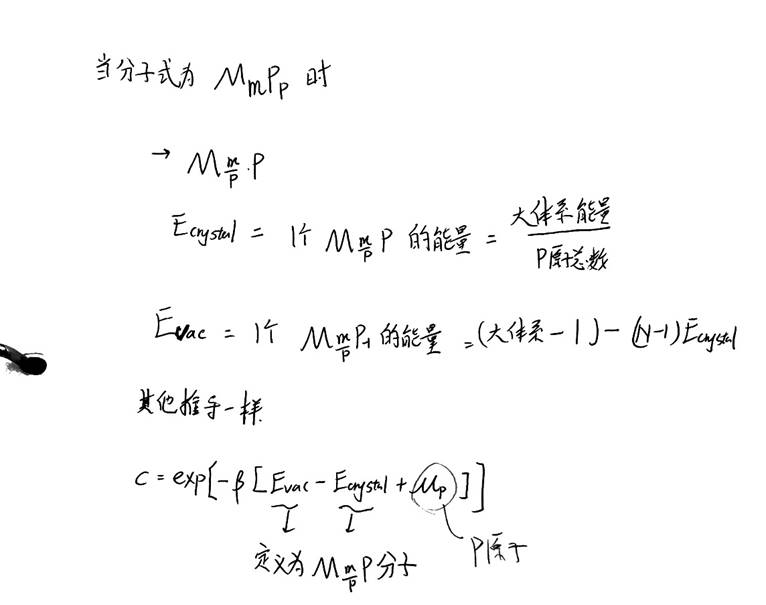 当分子式为 MmPp 时
→ M m/p · P
Ecrystal = 1个 M m/p P 的能量 = 大体系能量 / P原子总数
Evac = 1个 M m/p P-1 的能量 = (大体系 - 1) - (N-1) Ecrystal
其他推导一样
C = exp[-β [Evac - Ecrystal + μp]]
定义为 M m/p P 分子
P原子